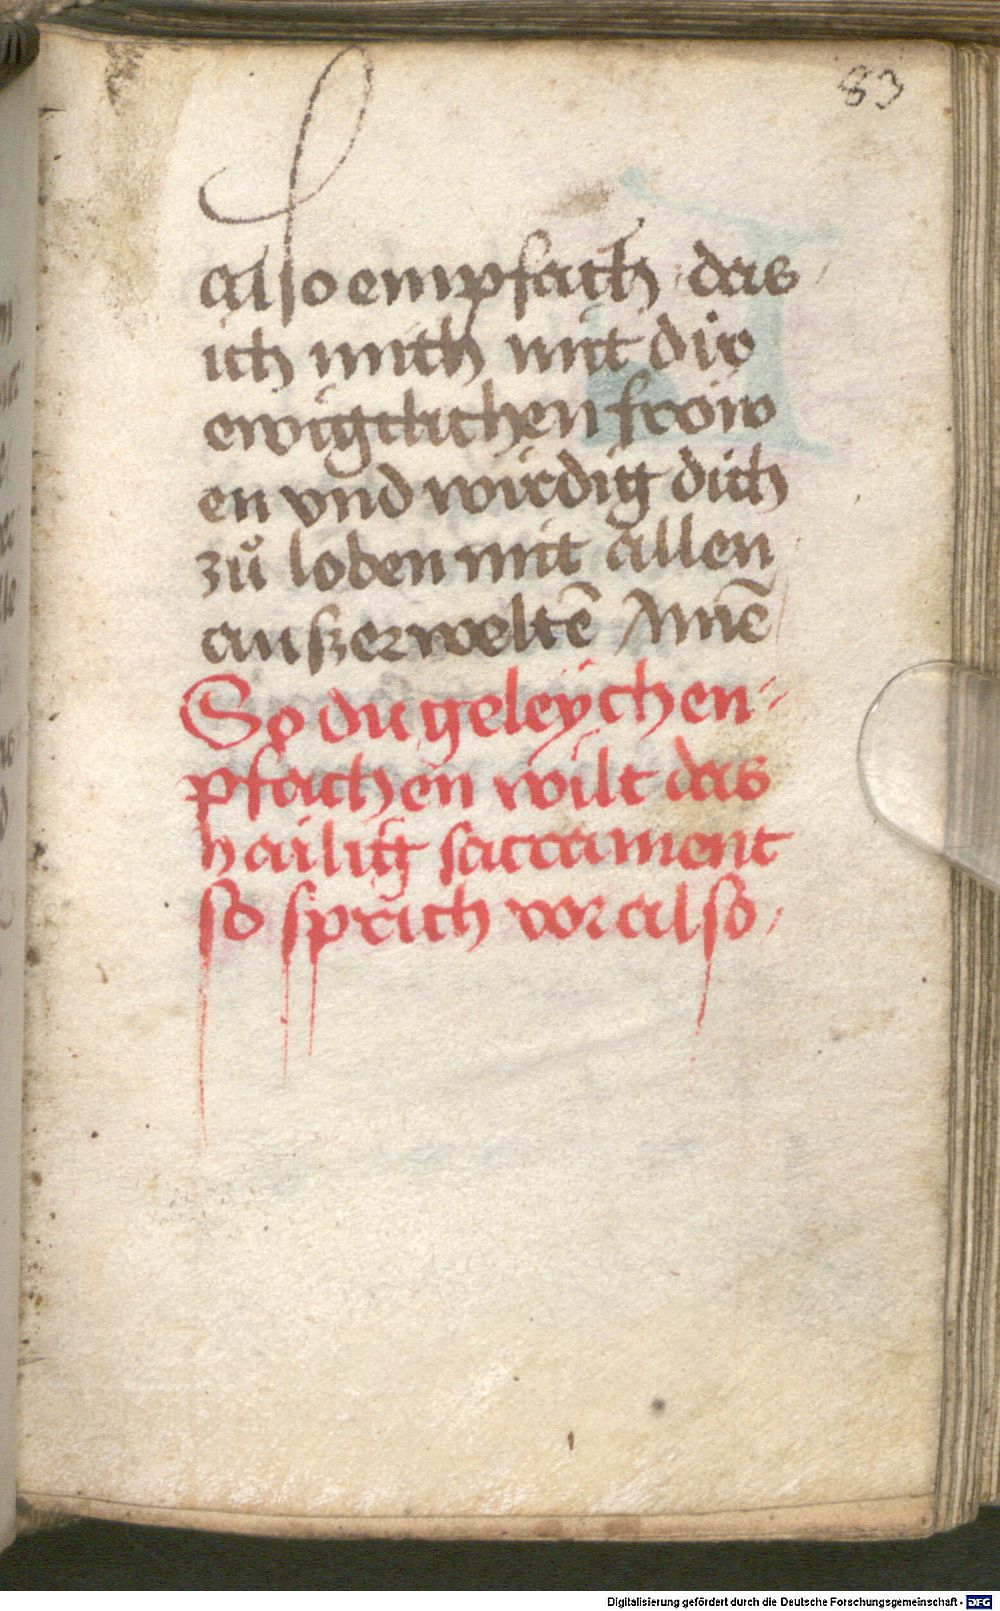 83
also empfach · das
ich mich mit dir
ewigclichen fröw
en vnd wirdig dich
zů loben mit allen
außerweltē Amē
So du geleych en-
pfachen wilt das
hailig sacrament
so sprich vor also ·
Digitalisierung gefördert durch die Deutsche Forschungsgemeinschaft - DFG